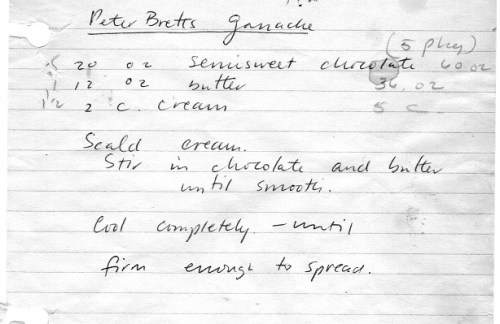 Peter Bretts ganache
(5 pkg)
.5 20 oz semisweet chocolate 60 oz
1 12 oz butter 36. oz
1 1/2 2 c. cream 5 c
Scald cream.
Stir in chocolate and butter
until smooth.
Cool completely. - until
firm enough to spread.